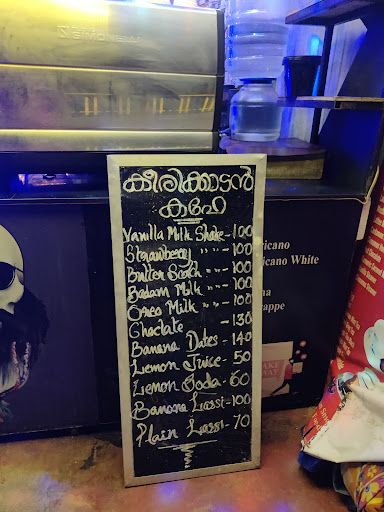 കീരിക്കാടൻ
കഫേ
Vanilla Milk Shake - 100
Strawberry " " - 100
Butter Scoch " " - 100
Badam Milk " " - 100
Oreo Milk " " - 100
Choclate - 130
Banana Dates - 140
Lemon Juice - 50
Lemon Soda - 60
Banana Lassi - 100
Plain Lassi - 70
ricano
icano White
appe